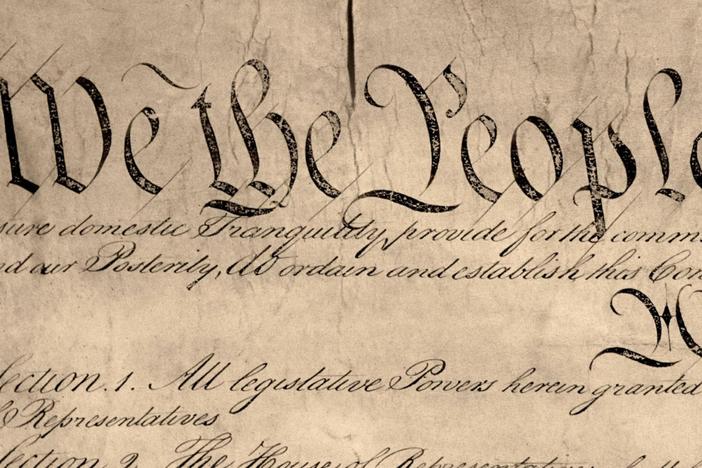 We the People
sure domestic Tranquility, provide for the comm
nd our Posterity, do ordain and establish this Con
Section. 1. All legislative Powers herein granted
Representatives
Section 2. The House of Representatives